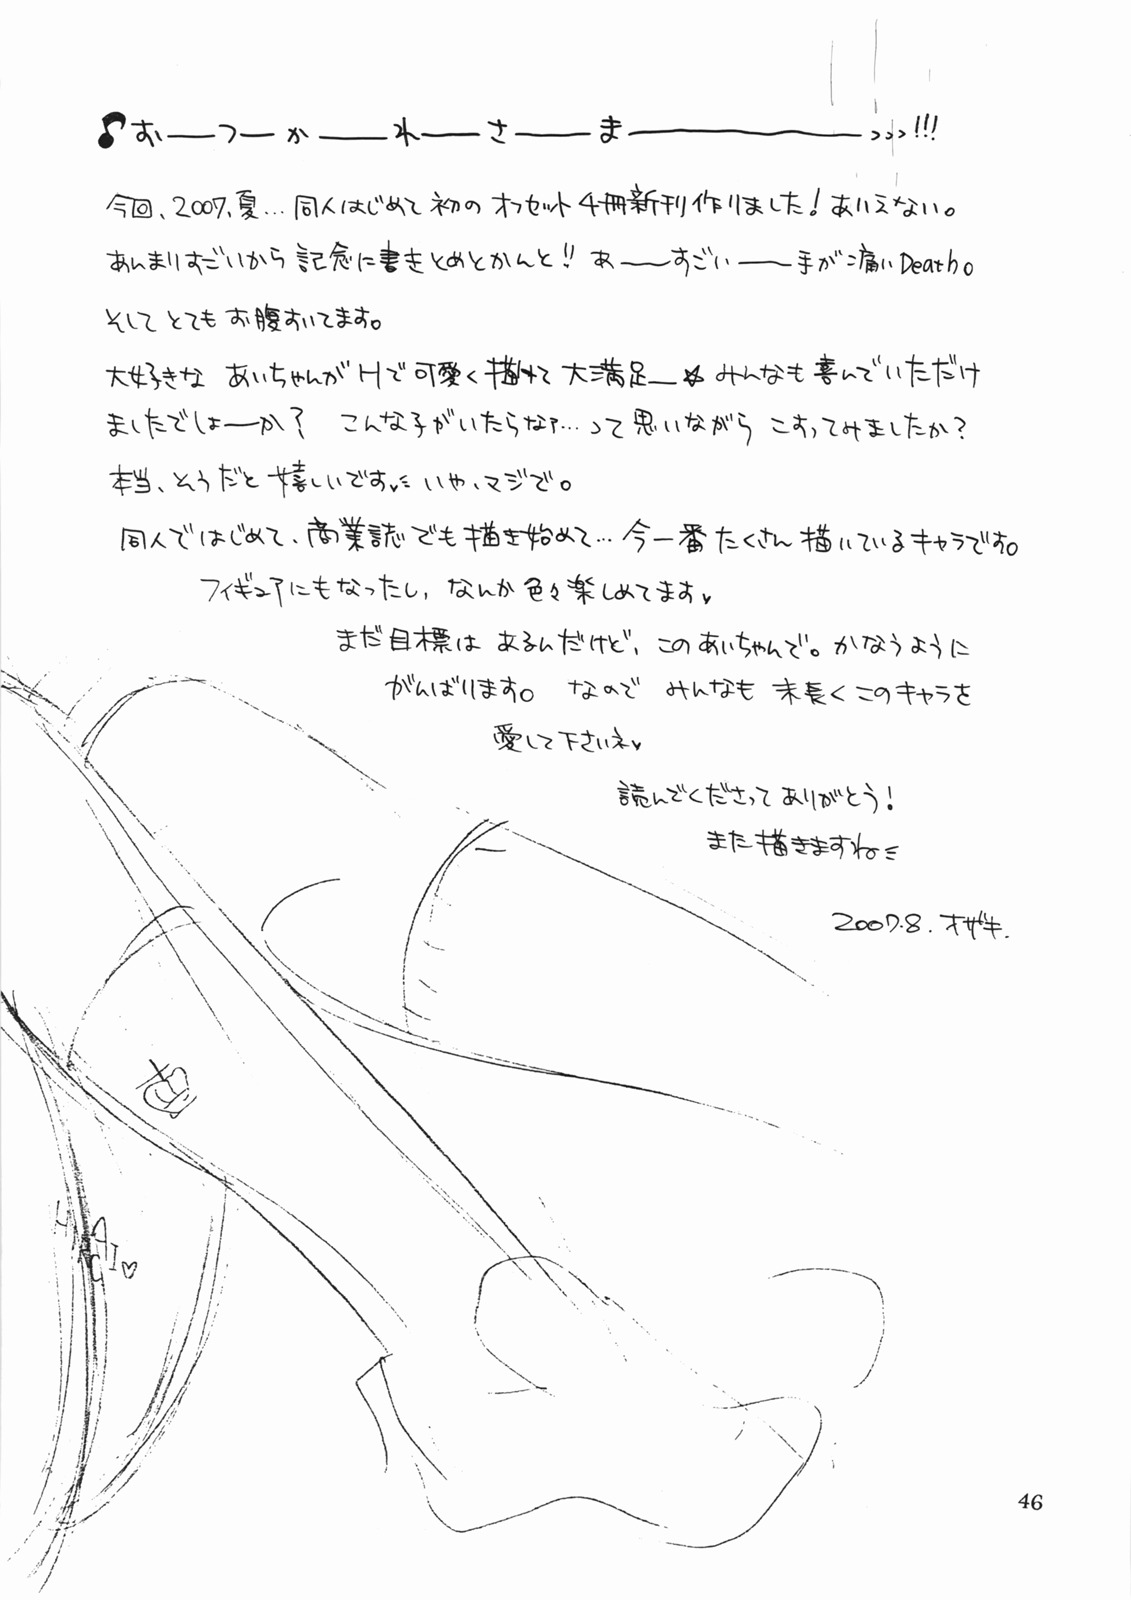 ♪お——つ——か——れ——さ——ま————>>>!!!
今回、2007、夏…同人はじめて初のオフセット4冊新刊作りました！ありえない。
あんまりすごいから記念に書きとめとかんと!! あ——すごい——手が痛いDeath。
そしてとてもお腹すいてます。
大好きな あいちゃんがHで可愛く描けて大満足—☆みんなも喜んでいただけ
ましたでしょーか？ こんな子がいたらなァ…って思いながら こすってみましたか？
本当、そうだと嬉しいです♥ いや、マジで。
同人ではじめて、商業誌でも描き始めて…今一番たくさん描いているキャラです。
フィギュアにもなったし、なんか色々楽しめてます♥
まだ目標は あるんだけど、このあいちゃんで。かなうように
がんばります。 なので みんなも 末長くこのキャラを
愛して下さいネ♥
読んでくださって ありがとう！
また描きますね
2007.8. オザキ.
46